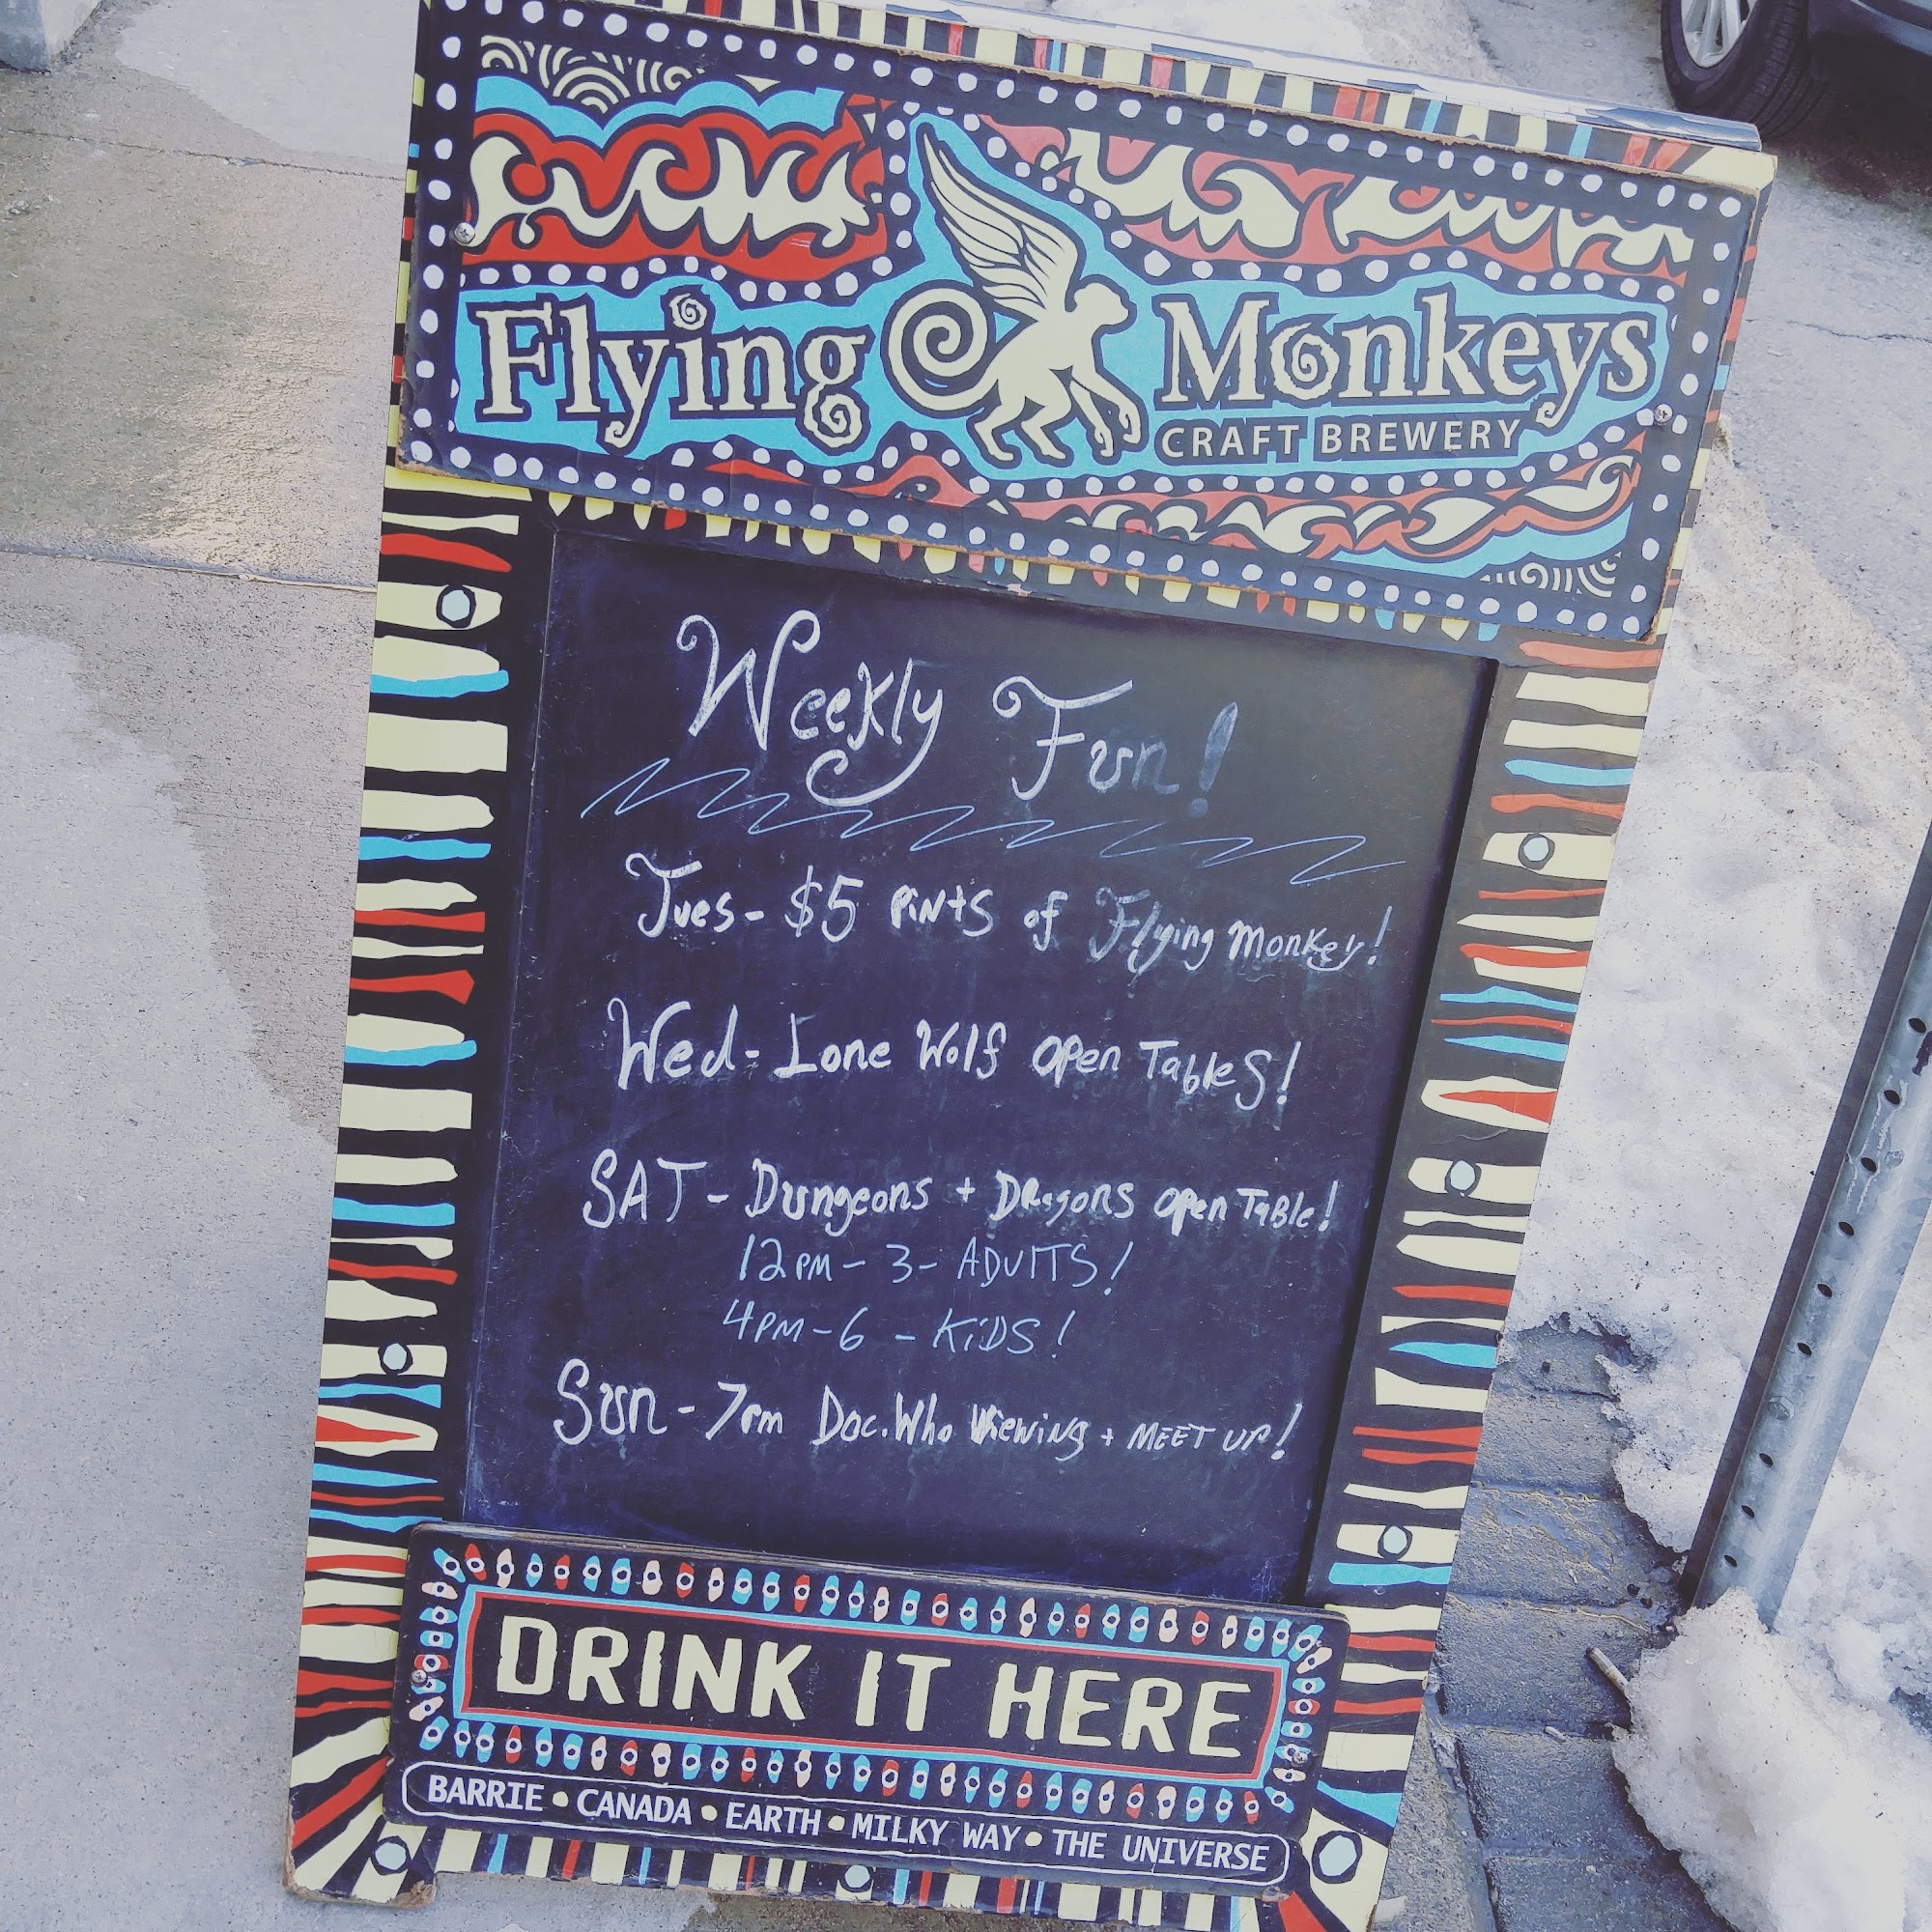 Flying Monkeys
CRAFT BREWERY
Weekly Fun!
Tues - $5 PiNtS of Flying Monkey!
Wed - Lone Wolf Open Tables!
SAT - Dungeons + Dragons Open Table!
12PM - 3 - ADULTS!
4PM - 6 - KiDS!
Sun - 7pm Doc. Who Viewing + MEET UP!
DRINK IT HERE
BARRIE • CANADA • EARTH • MILKY WAY • THE UNIVERSE